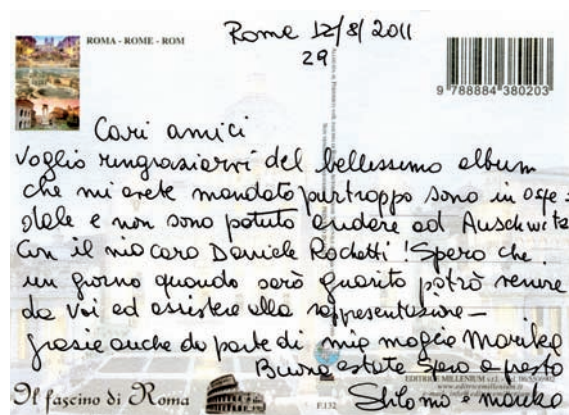 ROMA - ROME - ROM
Rome 12/8/2011
29
9 788884 380203
Cari amici
Voglio rengrasiarvi del bellessimo album
che mi avete mandato purtroppo sono in ospe=
dale e non sono potuto andare ad Auschwitz
Con il mio caro Daniele Rochetti ! Spero che
un giorno quando sarò guarito potrò venire
da voi ed assistere alla rappresentasione —
grasie anche da parte di mia moglie Marika
Buona estate Spero a presto
Shlomo e marika
EDITRICE MILLENIUM s.r.l.
Il fascino di Roma
P.132